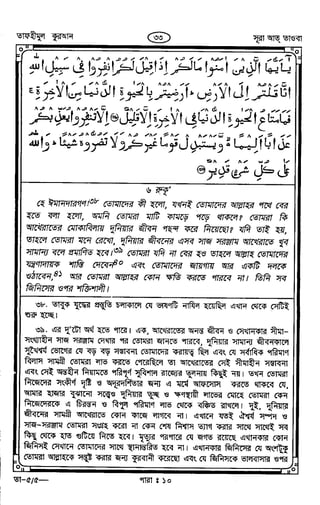 তাফহীমুল কুরআন ৩৩ সূরা আত্ তাওবা
يٰٓاَيُّهَا الَّذِيْنَ اٰمَنُوْا مَا لَكُمْ اِذَا قِيْلَ لَكُمُ انْفِرُوْا فِيْ سَبِيْلِ اللّٰهِ
اثَّاقَلْتُمْ اِلَى الْاَرْضِ ؕ اَرَضِيْتُمْ بِالْحَيٰوةِ الدُّنْيَا مِنَ الْاٰخِرَةِ ۚ
فَمَا مَتَاعُ الْحَيٰوةِ الدُّنْيَا فِي الْاٰخِرَةِ اِلَّا قَلِيْلٌ ۞ اِلَّا تَنْفِرُوْا يُعَذِّبْكُمْ
عَذَابًا اَلِيْمًا ۙ وَّيَسْتَبْدِلْ قَوْمًا غَيْرَكُمْ وَلَا تَضُرُّوْهُ شَيْـًٔا ؕ وَاللّٰهُ
عَلٰى كُلِّ شَيْءٍ قَدِيْرٌ ۞
৬ রুকূ'
হে ঈমানদারগণ!৩৮ তোমাদের কী হলো, যখনই তোমাদের আল্লাহর পথে বের
হতে বলা হলো, অমনি তোমরা মাটি কামড়ে পড়ে থাকলে? তোমরা কি
আখেরাতের মোকাবিলায় দুনিয়ার জীবন পছন্দ করে নিয়েছো? যদি তাই হয়,
তাহলে তোমরা মনে রেখো, দুনিয়ার জীবনের এসব সাজ সরঞ্জাম আখেরাতে খুব
সামান্য বলে প্রমাণিত হবে।৩৯ তোমরা যদি না বের হও তাহলে আল্লাহ তোমাদের
যন্ত্রণাদায়ক শাস্তি দেবেন৪০ এবং তোমাদের জায়গায় আর একটি দলকে
ওঠাবেন,৪১ আর তোমরা আল্লাহর কোন ক্ষতি করতে পারবে না। তিনি সব
জিনিসের ওপর শক্তিশালী।
৩৮. তাবুক যুদ্ধের প্রস্তুতি চলাকালে যে ভাষণটি নাযিল হয়েছিল এখান থেকে সেটিই
শুরু হচ্ছে।
৩৯. এর দু'টো অর্থ হতে পারে। এক, আখেরাতের অনন্ত জীবন ও সেখানকার সীমা-
সংখ্যাহীন সাজ সরঞ্জাম দেখার পর তোমরা জানতে পারবে, দুনিয়ার সামান্য জীবনকালে
সুখৈশ্বর্য ভোগের যে বড় বড় সম্ভাবনা তোমাদের করায়ত্ত ছিল এবং যে সর্বাধিক পরিমাণ
বিলাস সামগ্রী তোমরা লাভ করতে পেরেছিলে তা আখেরাতের সেই সীমাহীন সম্ভাবনা
এবং সেই অন্তহীন নিয়ামতে পরিপূর্ণ সুবিশাল রাজ্যের তুলনায় কিছুই নয়। তখন তোমরা
নিজেদের সংকীর্ণ দৃষ্টি ও অদূরদর্শিতার জন্য এ মর্মে আফসোস করতে থাকবে যে,
আমার হাজার বুঝানো সত্ত্বেও দুনিয়ার তুচ্ছ ও ক্ষণস্থায়ী লাভের মোহে তোমরা কেন
নিজেদেরকে এ চিরন্তন ও বিপুল পরিমাণ লাভ থেকে বঞ্চিত রাখলে। দুই, দুনিয়ার
জীবনের সামগ্রী আখেরাতে কোন কাজে লাগবে না। এখানে যতই ঐশ্বর্য সম্পদ ও
সাজ-সরঞ্জাম তোমরা সংগ্রহ করো না কেন শেষ নিশ্বাস ত্যাগ করার সাথে সাথেই সব
কিছু থেকে হাত গুটিয়ে নিতে হবে। মৃত্যুর পরপারে যে জগত রয়েছে এখানকার কোন
জিনিসই সেখানে তোমাদের সাথে স্থানান্তরিত হবে না। এখানকার জিনিসের যে অংশটুকু
তোমরা আল্লাহকে সন্তুষ্ট করার জন্য কুরবানী করেছো এবং যে জিনিসকে ভালবাসার ওপর
তা-৫/৫— পারা : ১০